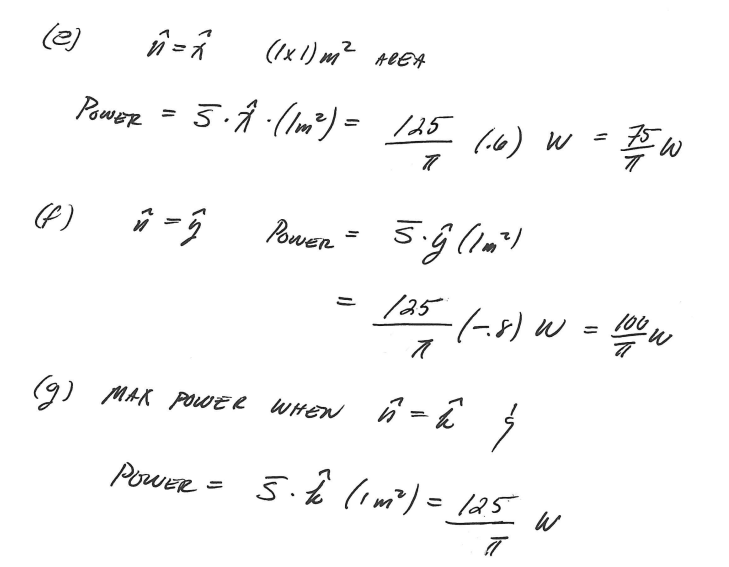 (e) n̂ = x̂ (1x1) m² AREA
POWER = S̄ · x̂ · (1m²) = 125/π (.6) W = 75/π W
(f) n̂ = ŷ POWER = S̄ · ŷ (1m²)
= 125/π (-.8) W = 100/π W
(g) MAX POWER WHEN n̂ = k̂ &
POWER = S̄ · k̂ (1m²) = 125/π W